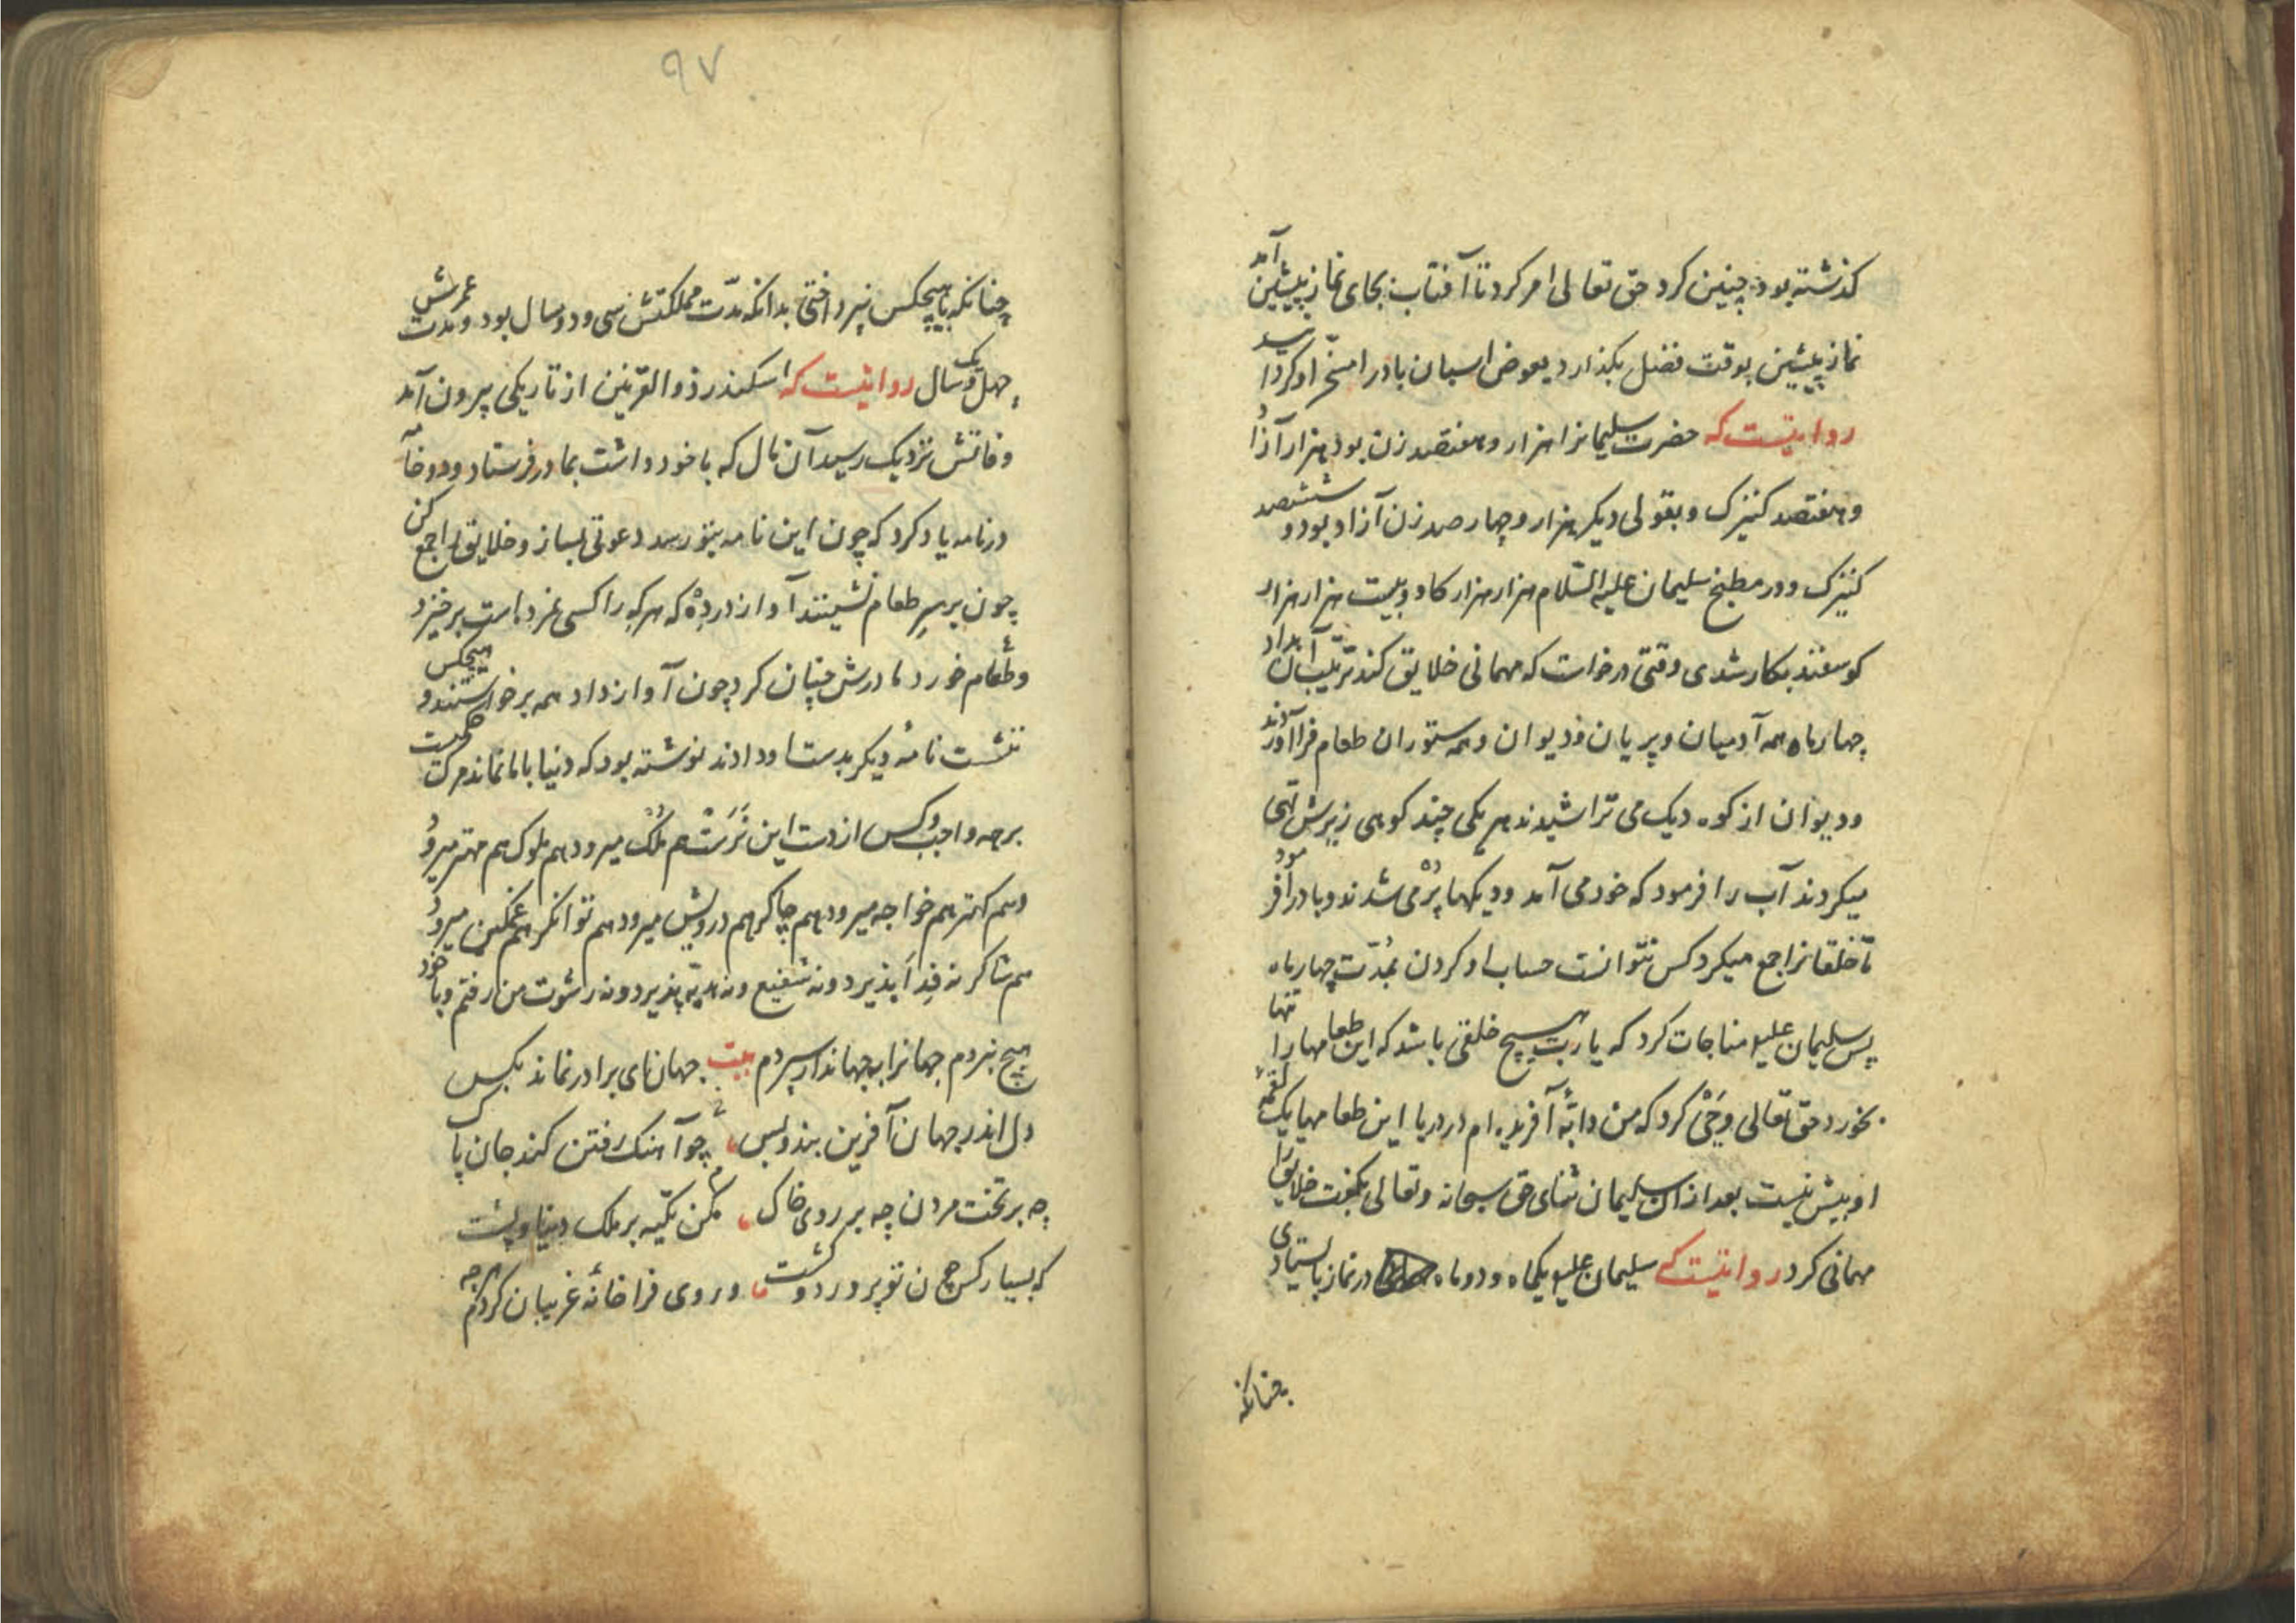 کذشته بود چنین کرد حق تعالی امر کرد تا آفتاب بجای نماز پیشین آمد
نماز پیشین بوقت فضل بکذارد بعوض اسبان باد را مسخّر او کردانید
روایتست که حضرت سلیمانرا هزار و هفتصد زن بود هزار آزاد
و هفتصد کنیزک و بقولی دیکر هزار و چهار صد زن آزاد بود و ششصد
کنیزک و در مطبخ سلیمان علیه السّلام هزار هزار کاو و بیست هزار هزار
کوسفند بکار شدی وقتی درخواست که مهمانی خلایق کند ترتیب آن بداد
چهار ماه همه آدمیان و پریان و دیوان و همه ستوران طعام فراآوردند
و دیوان از کوه دیک می تراشیدند هر یکی چند کوهی زیرش تهی
میکردند آب را فرمود که خود می آمد و دیکها پُر می شدند و باد را فرمود
تا خلقانرا جمع میکرد کس نتوانست حساب او کردن بمُدّت چهار ماه
پس سلیمان علیه مناجات کرد که یا رب هیچ خلقی باشد که این طعامها را تنها
بخورد حق تعالی وحی کرد که من دابّهٔ آفریده ام در دریا این طعامها یک لقمهٔ
او بیش نیست بعد از آن سلیمان ثنای حق سبحانه و تعالی بکفت خلایق را
مهمانی کرد روایتست که سلیمان علیه یکماه و دو ماه در نماز باستیادی
چنانکه
۹۷
چنانکه با هیچکس نپرداختی بدانکه مدّت مملکتش سی و دو سال بود و مدت عمرش
چهل و یک سال روایتست که اسکندر ذوالقرنین از تاریکی بیرون آمد
وفاتش نزدیک رسید آن مال که با خود داشت بمادر فرستاد و دو
در نامه یاد کرد که چون این نامه بتو رسد دعوتی بساز و خلایق را جمع کن
چون بر سر طعام نشینند آواز در ده که هر که را کسی مرده است برخیزد
و طعام نخورد مادرش چنان کرد چون آواز داد همه برخواستند و هیچکس
ننشست نامهٔ دیکر بدست او دادند نوشته بود که دنیا با ما نماند مرک حکمیست
بر همه واجب و کس از دست این نَرَست هم مُلک میرود هم ملوک هم مهتر میرود
و هم کهتر هم خواجه میرود هم چاکر هم درویش میرود هم توانکر هم غمکین میرود
هم شاکر نه فدا پذیرد و نه شفیع و نه هدیّه پذیرد و نه رشوت من رفتم و با خود
هیچ نبردم جهانرا بجهاندار سپردم بیت جهان ای برادر نماند بکس
دل اندر جهان آفرین بند و بس چو آهنک رفتن کند جان پاک
چه بر تخت مردن چه بر روی خاک مکن تکیه بر ملک دنیا و پشت
که بسیار کس چون تو پرورد و کشت و روی فرا خانهٔ غریبان کردم هر چه